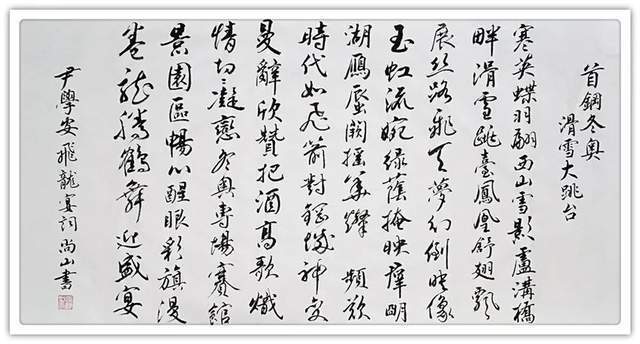 首鋼冬奧
滑雪大跳台
寒英蝶羽翩西山雪影盧溝橋
畔滑雪跳臺鳳凰舒翅飄
展丝路飛天夢幻倒映像
玉虹流婉绿蔭掩映群明
湖鴈蜃闕摇 頻
時代如飛箭對鋼城神交
曼辭欣贊把酒高歌熾
情切凝戀冬奧專場賽館
景園區暢心醒眼彩旗漫
卷龍騰鶴舞迎盛宴
尹學安飛龍宴詞尚山書